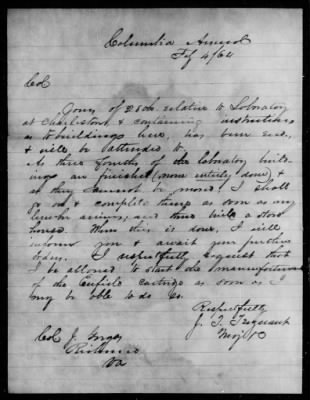 Columbia Arsenal
Feby 4/64
Col
Yours of 28th relative to Laboratory
at Charleston, & containing instructions
as to buildings here, has been recd.
& will be attended to.
As three fourths of the laboratory build-
ings are finished (none entirely done) &
as they cannot be moved I shall
go on & complete them as soon as any
lumber arrives, and then build a store
house. When this is done, I will
inform you & await your further
orders. I respectfully request that
I be allowed to start the manufacture
of the Enfield cartridge as soon as I
may be able to do so.
Respectfully
J. T. Trezevant
Maj
Col J. Gorgas
Richmond
Va